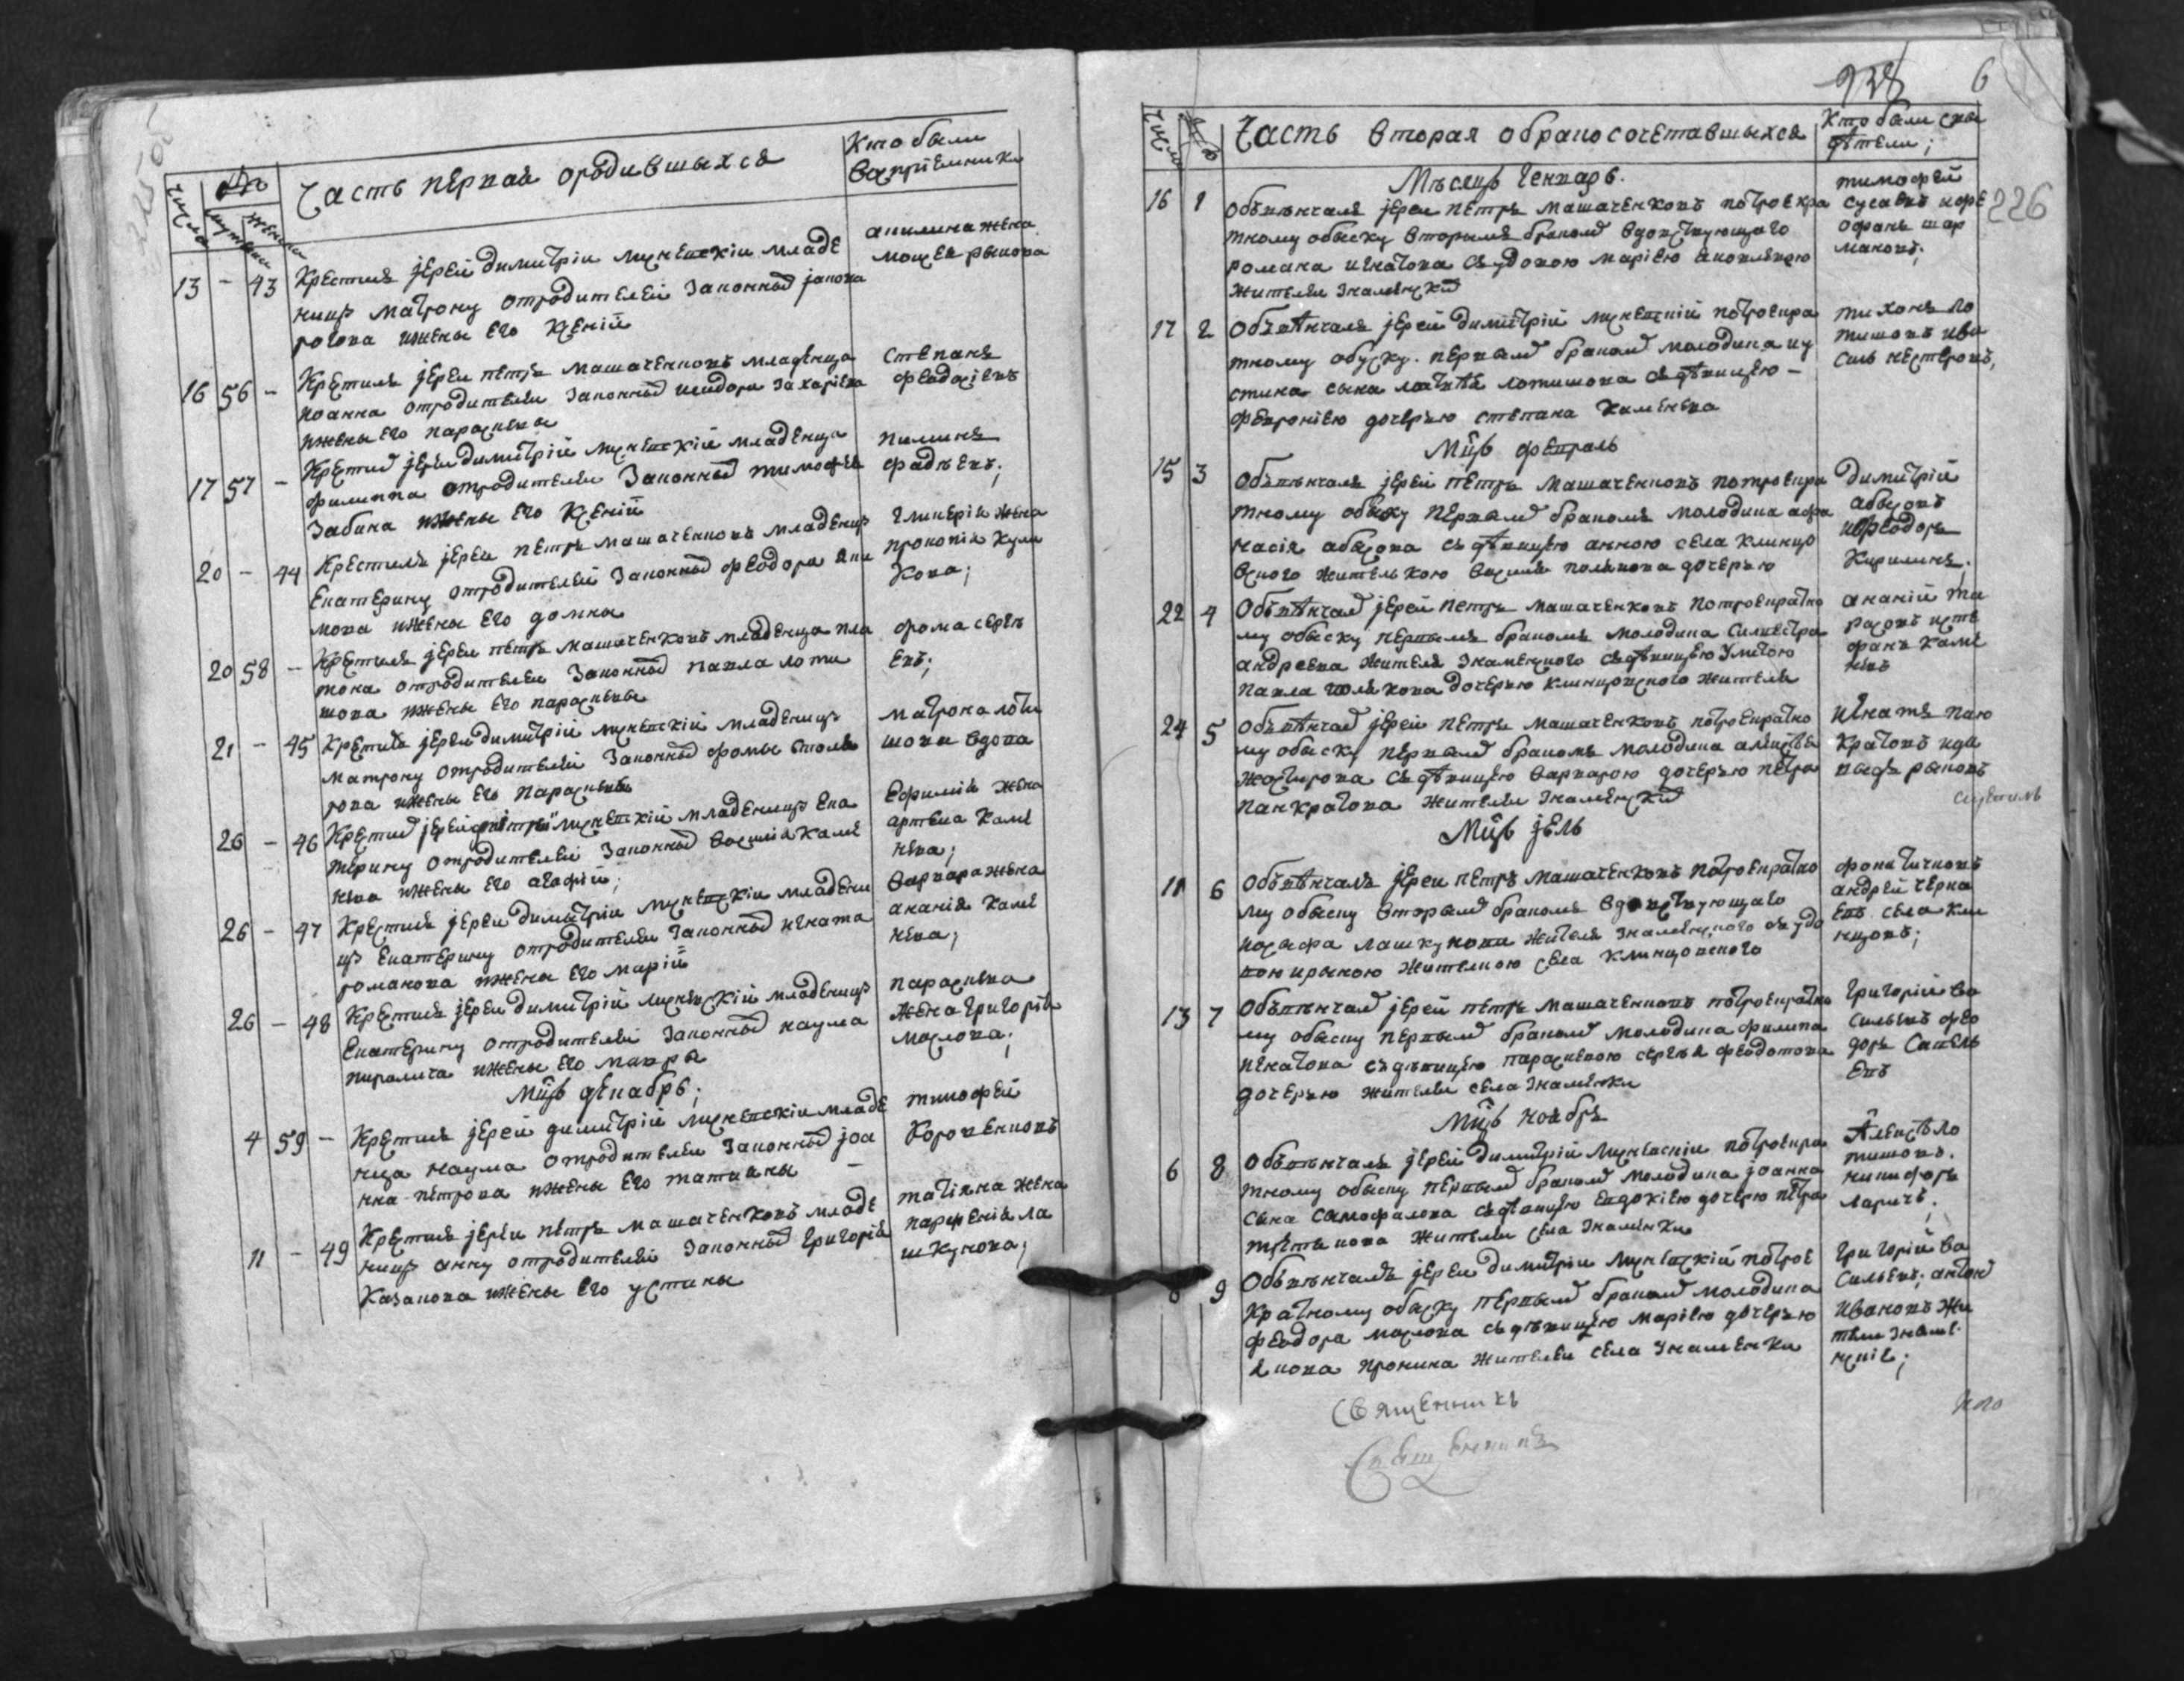 Числа
№
мужеска
женска
Часть первая о родившыхся
Кто были
восприемники
13 - 43 Крестилъ іерей димитрій младе
ницу матрону от родителей законных іакова
рогова и жены его ксеніи
акилина жена
рыкова
16 56 - Крестилъ іереи петръ машаченковъ младенца
иоанна от родителей законных исидора захаріева
и жены его параскевы
Степанъ
феодосіевъ
17 57 - Крестил іереи димитрій младенца
филиппа от родителеи законных тимофея
забина и жены его ксеніи
пиминъ
фадѣевъ;
20 - 44 Крестилъ іереи петръ машаченковъ младеницу
Екатерину от родителей законных феодора аки
мова и жены его домны
гликерія жена
прокопія кули
кова;
20 58 - Крестилъ іереи петръ машаченковъ младенца пла
тона от родителеи законных павла лоти
шова и жены его параскевы
фома сергѣ
евъ;
21 - 45 Крестилъ іереи димитрій младеницу
матрону от родителей законных фомы столя
рова и жены его параскевы
матрона лоти
шова вдова
26 - 46 Крестил іерей димитрій младеницу ека
терину от родителей законных василія каме
нева и жены его агафіи;
Ефимія жена
артема каме
нева;
26 - 47 Крестилъ іереи димитріи младени
цу екатерину от родителеи законных игната
романова и жены его маріи
варвара жена
ананія каме
нева;
26 - 48 Крестилъ іереи димитрій младеницу
Екатерину от родителей законных наума
и жены его мавры
параскева
жена григорія
маслова;
Мцъ декабрь;
4 59 - Крестилъ іерей димитрій младе
нца наума от родителеи законных іоа
нна петрова и жены его татианы
тимофей
Коровенковъ
11 - 49 Крестилъ іереи петръ машаченковъ младе
ницу анну от родителей законных григорія
Казакова и жены его устины
татіяна жена
парфенія ла
шкунова;
6
226
Числа
Часть вторая о бракосочетавшыхся
Кто были сви
дѣтели;
Мѣсяцъ генварь.
16 1 Объвѣнчалъ іереи петръ машаченковъ по троекра
тному обыску вторымъ браком вдовствующаго
романа игнатова съ удовою маріею яковлевою
жители знаменских
тимофей
сусаевъ и офе
офанъ шар
маковъ;
17 2 Объвѣнчалъ іерей димитрій по троекра
тному обыску первым браком молодика иу
стина сына лотишова съ дѣвицею -
феврониею дочерью степана Каменева
тихонъ ло
тишовъ и ва
силь нестеровъ,
Мцъ февраль
15 3 Объвѣнчалъ іерей петръ машаченковъ по троекра
тному обыску первым бракомъ молодика афа
насія абысова съ дѣвицею анною села клинцо
вского жителькою василія полякова дочерью
димитрій
абысовъ
и феодоръ
Кирилинъ;
22 4 Объвѣнчал іерей петръ машаченковъ по троекратно
му обыску первымъ бракомъ молодика силвестра
андреева жителя знаменского съ дѣвицею улитою
павла полякова дочерью клинцовского жителя
ананій та
расовъ и сте
фанъ каме
невъ
24 5 Объвѣнчал іерей петръ машаченковъ по троекратно
му обыску первым бракомъ молодика алексѣя
съ дѣвицею варварою дочерью петра
панкратова жители знаменских
Игнатъ пан
кратовъ и да
выдъ рыковъ
Мцъ іюль
11 6 Объвѣнчалъ іереи петръ машаченковъ по троекратно
му обыску вторым бракомъ вдовствующаго
иосифа лашкунова жителя знаменского съ удо
вою ириною жителкою села клинцовского
фока
андрей черка
евъ села кли
нцовъ;
13 7 Объвѣнчал іерей петръ машаченковъ по троекратно
му обыску первым браком молодика филипа
игнатова съ дѣвицею параскевою сергѣя феодотова
дочерью жители села знаменки
григорій ва
сильевъ фео
доръ савель
евъ
Мцъ ноябрь
6 8 Объвѣнчалъ іерей димитрій по троекра
тному обыску первым браком молодика іоанна
сына самофалова съ дѣвицею евдокіею дочерю петра
третьякова жители села знаменки
Алексѣй ло
тишовъ.
никифоръ
ларичъ;
8 9 Объвѣнчалъ іереи димитріи по трое
кратному обыску первым браком молодика
феодора маслова съ дѣвицею маріею дочерью
якова пронина жители села знаменки
григорій ва
сильевъ; антон
ивановъ жи
тели знаме
нскіе;
Священникъ
Священникъ